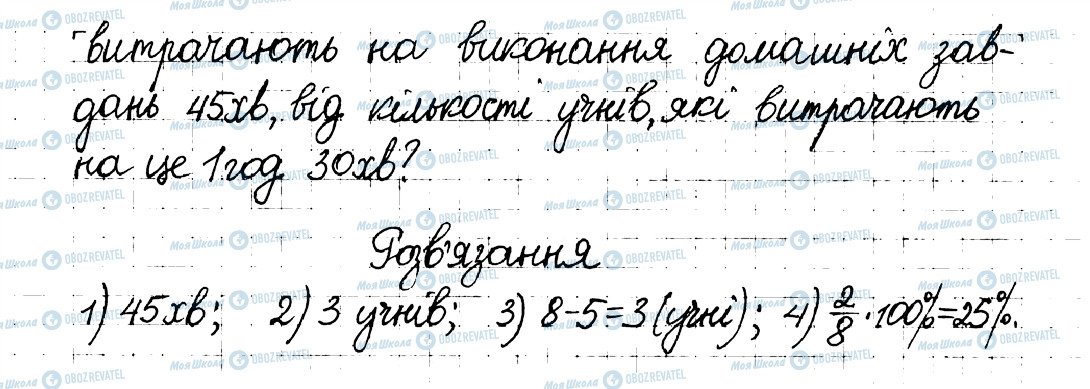 витрачають на виконання домашніх зав-
дань 45хв, від кількості учнів, які витрачають
на це 1 год 30хв?
Розв'язання
1) 45хв; 2) 3 учнів; 3) 8-5=3 (учні); 4) 2/8 · 100%=25%.